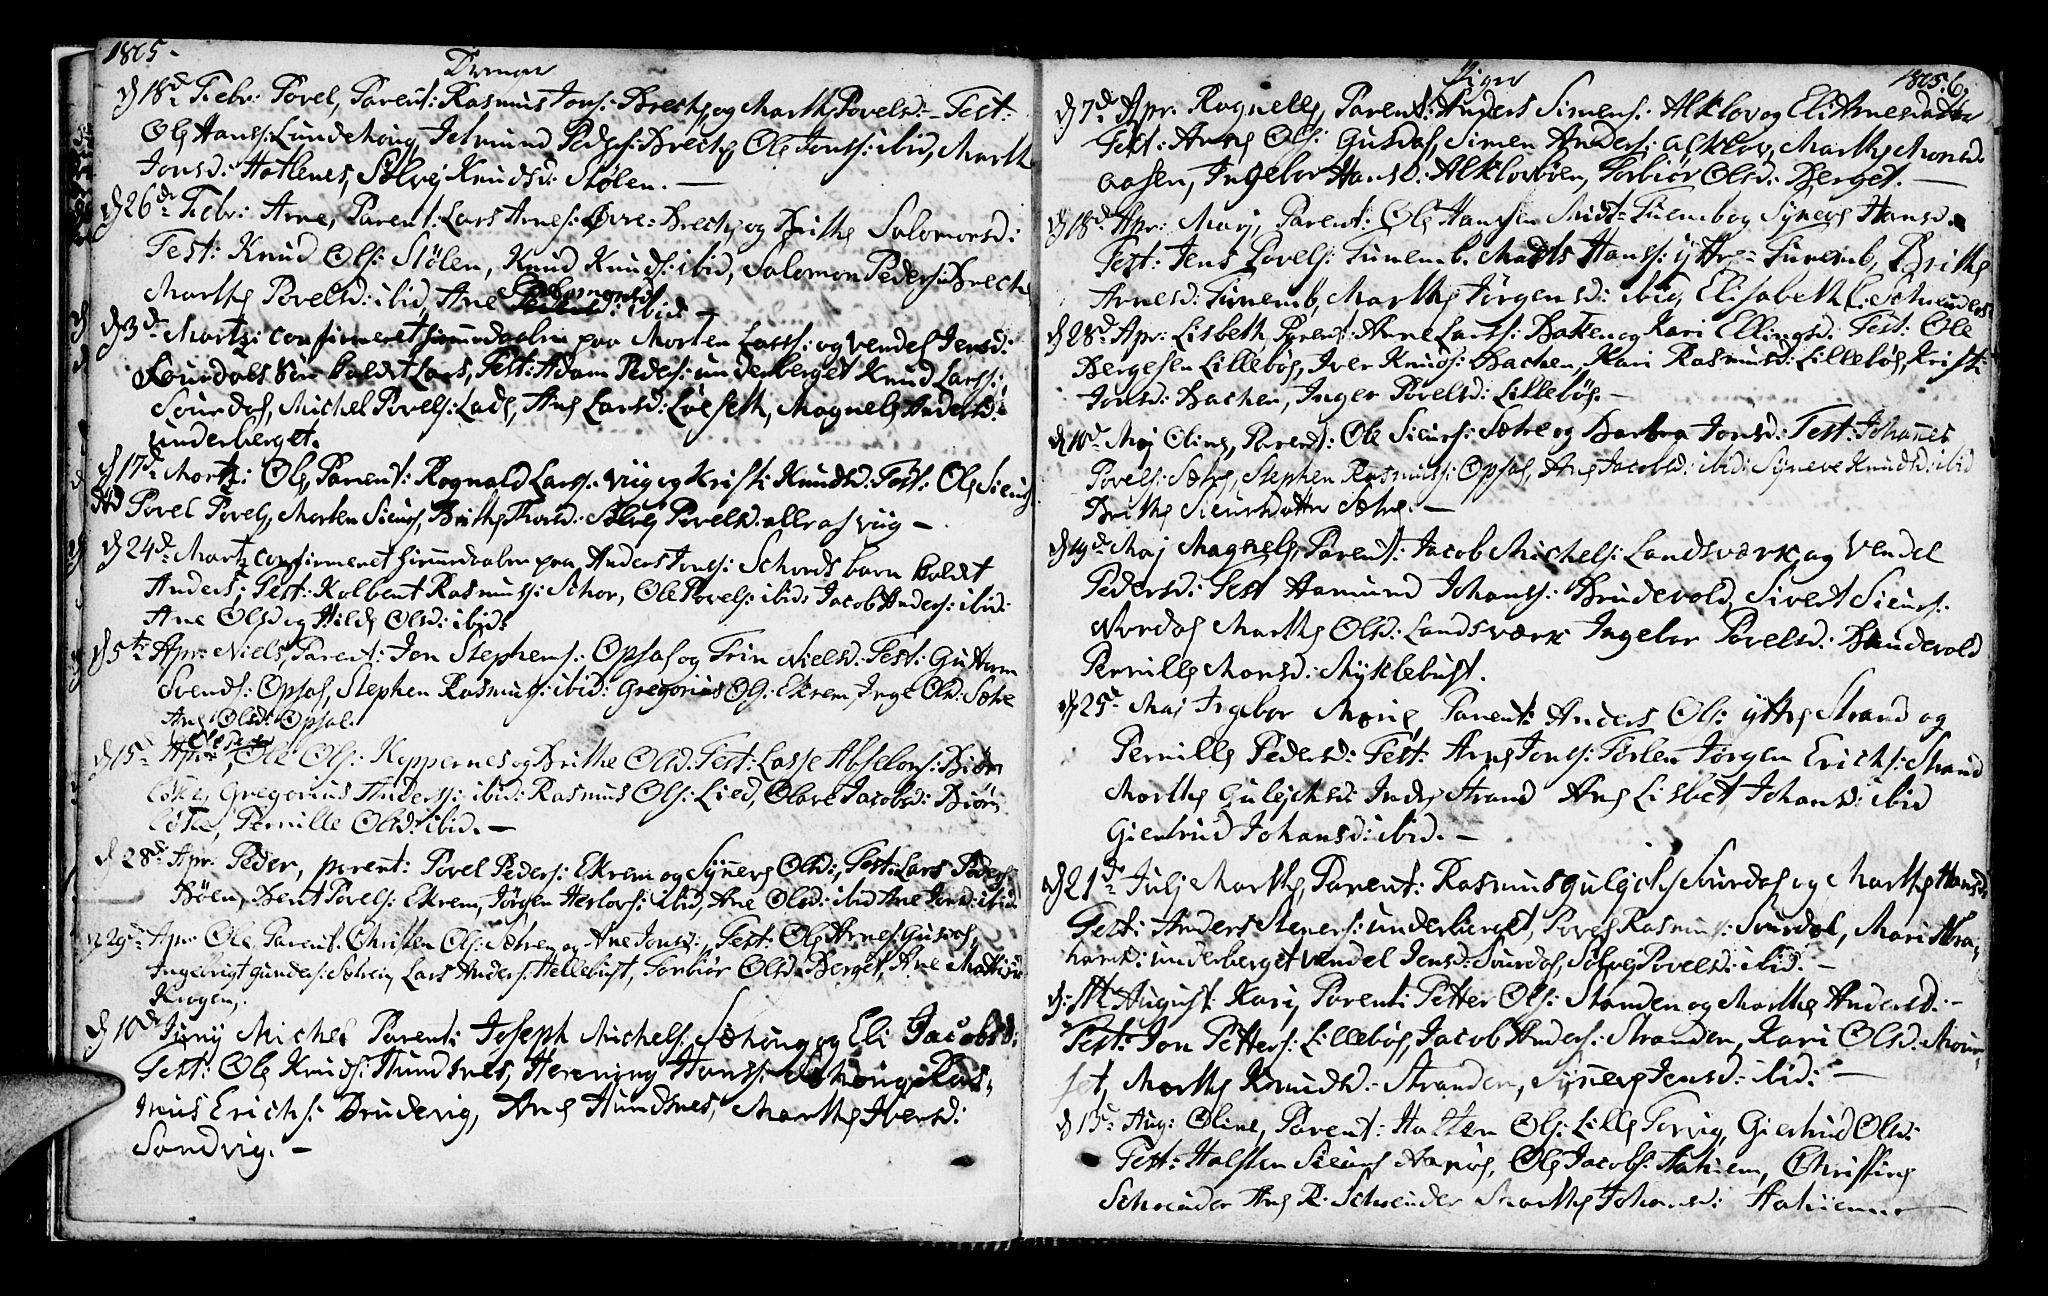 1805-
Drenge
d 18d Febr: Povel, Parent: Rasmus Jons: Brecke og Marthe Povelsd: - Test:
Ole Hans: Lundehoug, Jetmund Peders: Brecke, Ole Jons: ibid, Marthe
Jonsd: Hatlenes, Sølvej Knudsd: Stølen. -
d 26de Febr: Arne, Parent: Lars Arnes: Øvre-Brecke og Brithe Salomonsd:
Test: Knud Ols: Stølen, Knud Knuds: ibid, Salomon Peders: Brecke
Marthe Povelsd: ibid, Ane Salomonsd: ibid -
d 3d Martz: confirmeret hiemmedaaben paa Morten Lass: og Vendel Jensd:
Sourdals kaldt Lars, Test: Adam Peders: underberget Knud Lars:
Sourdal, Michel Povels: Lade, Ane Larsd: Løeseth, Magnele Andersd:
underberget.
d 17d Martz: Ole, Parent: Rognald Lars: Viig og Kristi Knudsd: Test: Ole Siurs:
Povel Povels, Morten Siurs, Brithe Thored: Sølvej Povelsd. alle af viig -
d 24d: Martz confirmeret hiemmedaaben paa Anders Jons: Schords barn kaldt
Anders; Test: Kolbent Rasmus: Schor, Ole Povels: ibid: Jacob Anders: ibid:
Ane Olsd og Hilde Olsd: ibid:
d 5te Apr: Niels, Parent: Jon Stephens: Opsal og Trin Nielsd: Test: Guttorm
Svends: Opsal, Stephen Rasmus: ibid: Gregorius Ols: Ekrem, Inge Olsd: Sætre
Ane Olsd: Opsal.
d 15d Ole Ols: Koppernes og Brithe Olsd: Test: Lasse Abselons: Biørn
Gregorius Anders: ibid: Rasmus Ols: Lied, Olave Jacobsd: Biørn
Pernille Olsd: ibid. -
d 28d Apr: Peder, parent: Povel Peders: Ekrem og Synneve Olsd: Test: Lars Peders:
Bøen, Bent Povels: Ekrem, Jørgen Herlovs: ibid, Ane Olsd: ibid Ane Jonsd: ibid.
d 29d Apr: Ole, Parent: Christen Ols: Sætren og Ane Jonsd: Test: Ole Arnes: Gusdal,
Ingebrigt Gunders: Sætren, Lars Anders: Hellebust, Torbiør Olsd: Berget, Ane Mathisd:
Krogen.
d 10de Junij Michel Parent: Joseph Michels: Sæhoug og Eli Jacobsd:
Test: Ole Knuds: Hundsnes, Henning Hans: Sæhoug, Ras-
mus Erichs: Brudevig, Ane Hundsnes, Marthe Iversd:
Sandvig. -
Piger
1805. 6
d 7d Apr: Rognele, Parent: Anders Simens: Alklov og Eli Arnesdatter
Test: Arne Ols: Gusdal, Simen Anders: Alklov, Marthe Monsd:
aasen, Ingebor Hansd: Alklovbøen, Torbiør Olsd: Berget. -
d 18d Apr: Mary, Parent: Ole Hansen Midt-Tuenemb og Syneve Hansd.
Test: Jens Povels: Tunemb. Mads Hans: Yttre-Tunemb, Brithe
Arnesd: Tunemb, Marthe Jørgensd: ibid, Elisabeth C. Schreuder
d 28d Apr: Lisbeth Parent: Arne Lars: Bakken og Kari Ellingsd: Test: Ole
Bergesen Lillebøe, Iver Knuds: Bachen, Kari Rasmusd: Lillebøe, Kristi
Jonsd: Bachen, Inger Povelsd: Lillebøe. -
d 10d Maj Oline, Parent: Ole Siurs: Sætre og Barbra Jonsd: Test: Johannes
Povels: Sætre, Stephen Rasmus: Opsal, Ane Jacobsd: ibid: Syneve Knudsd: ibid
Brithe Siursdatter Sætre. -
d 19d Maj Magnele, Parent: Jacob Michels: Landsværk og Vendel
Pedersd: Test Hamund Johans: Brudevold, Sivert Siurs:
Nordal, Marthe Olsd: Landsværk Ingebor Povelsd: Brudevold
Pernille Monsd: Myklebust.
d 25d Maj Ingebor Marie, Parent: Anders Ols: ytre Strand og
Pernille Pedersd: Test: Arne Jons: Førlen Jørgen Erichs: Strand
Marthe Gulechsd: Indre Strand Ane Lisbet Johansd: ibid
Giertrud Johansd: ibid. -
d 21d Julj Marthe, Parent: Rasmus Gulech: Sourdal og Marthe Hansd:
Test: Anders Steners: underberget, Povel Rasmus: Sourdal, Mari Abra-
hamsd: underberget Vendel Jensd: Sourdal, Sølvej Povelsd: ibid. -
d: 11te August Kari, Parent: Petter Ols: Standen og Marthe Andersd: -
Test: Jon Petters: Lillebøe, Jacob Anders: Stranden, Kari Olsd: Mour-
set, Marthe Knudsd: Stranden, Syneve Jensd: ibid: -
d 15d: Aug: Oline, Parent: Halsten Ols: Lille Torvig, Giertrud Olsd:
Test: Halsten Siurs Aarøe, Ole Jacobs: Aahiem, Christine
Schreuder Ane R. Schreuder Marthe Johansd: Aahiem -